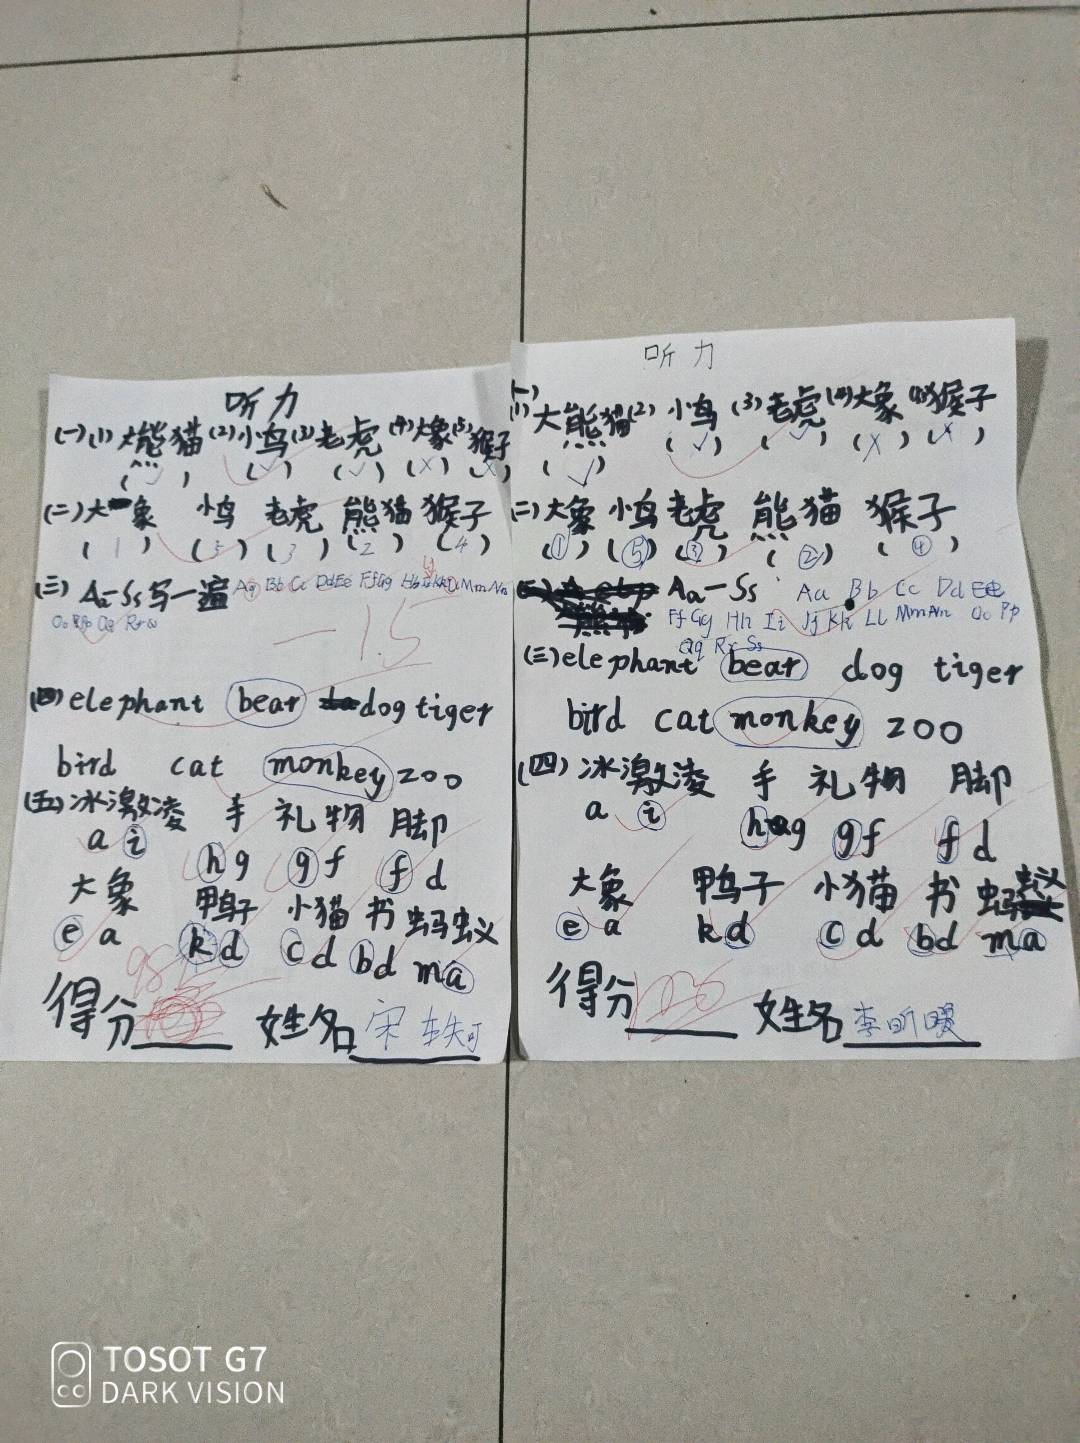 听力
(一)(1)大熊猫(2)小鸟(3)老虎(4)大象(5)猴子
(✓) (✓) (✓) (×) (×)
(二)大象 小鸟 老虎 熊猫 猴子
(1) (5) (3) (2) (4)
(三) Aa-Ss写一遍 Aa Bb Cc Dd Ee Ff Gg Hh Mm Nn
Oo Pp Qq Rr
-1.5
(四) elephant bear dog tiger
bird cat monkey zoo
(五)冰激凌 手 礼物 脚
a i h g g f f d
大象 鸭子 小猫 书 蚂蚁
e a k d c d b d m a
98.5
得分 姓名 宋轶可
听力
(一)
(1)大熊猫(2)小鸟(3)老虎(4)大象(5)猴子
(✓) (✓) (✓) (×) (×)
(二)大象 小鸟 老虎 熊猫 猴子
(①) (⑤) (③) (②) (④)
Aa-Ss Aa Bb Cc Dd Ee
Ff Gg Hh Ii Jj Kk Ll Mm Nn Oo Pp
Qq Rr Ss
(三) elephant bear dog tiger
bird cat monkey zoo
(四)冰激凌 手 礼物 脚
a i h g g f f d
大象 鸭子 小猫 书 蚂蚁
e a k d c d b d m a
得分 100 姓名 李昕暖
TOSOT G7
DARK VISION